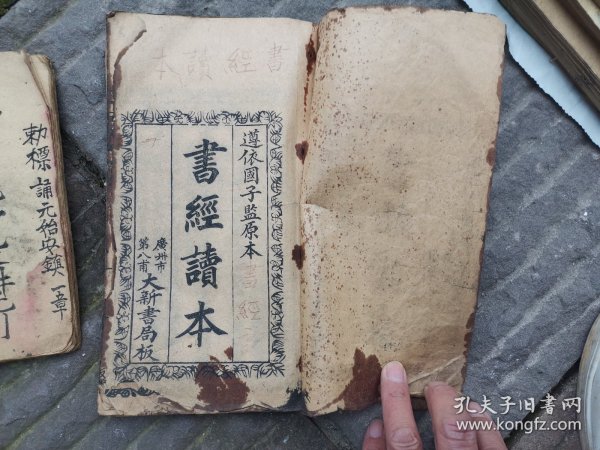 書經讀本
遵依國子監原本
書經讀本
廣州市
第八甫
大新書局板
書經
勅標
誦元始安鎮一章
孔夫子旧書网
www.kongfz.com